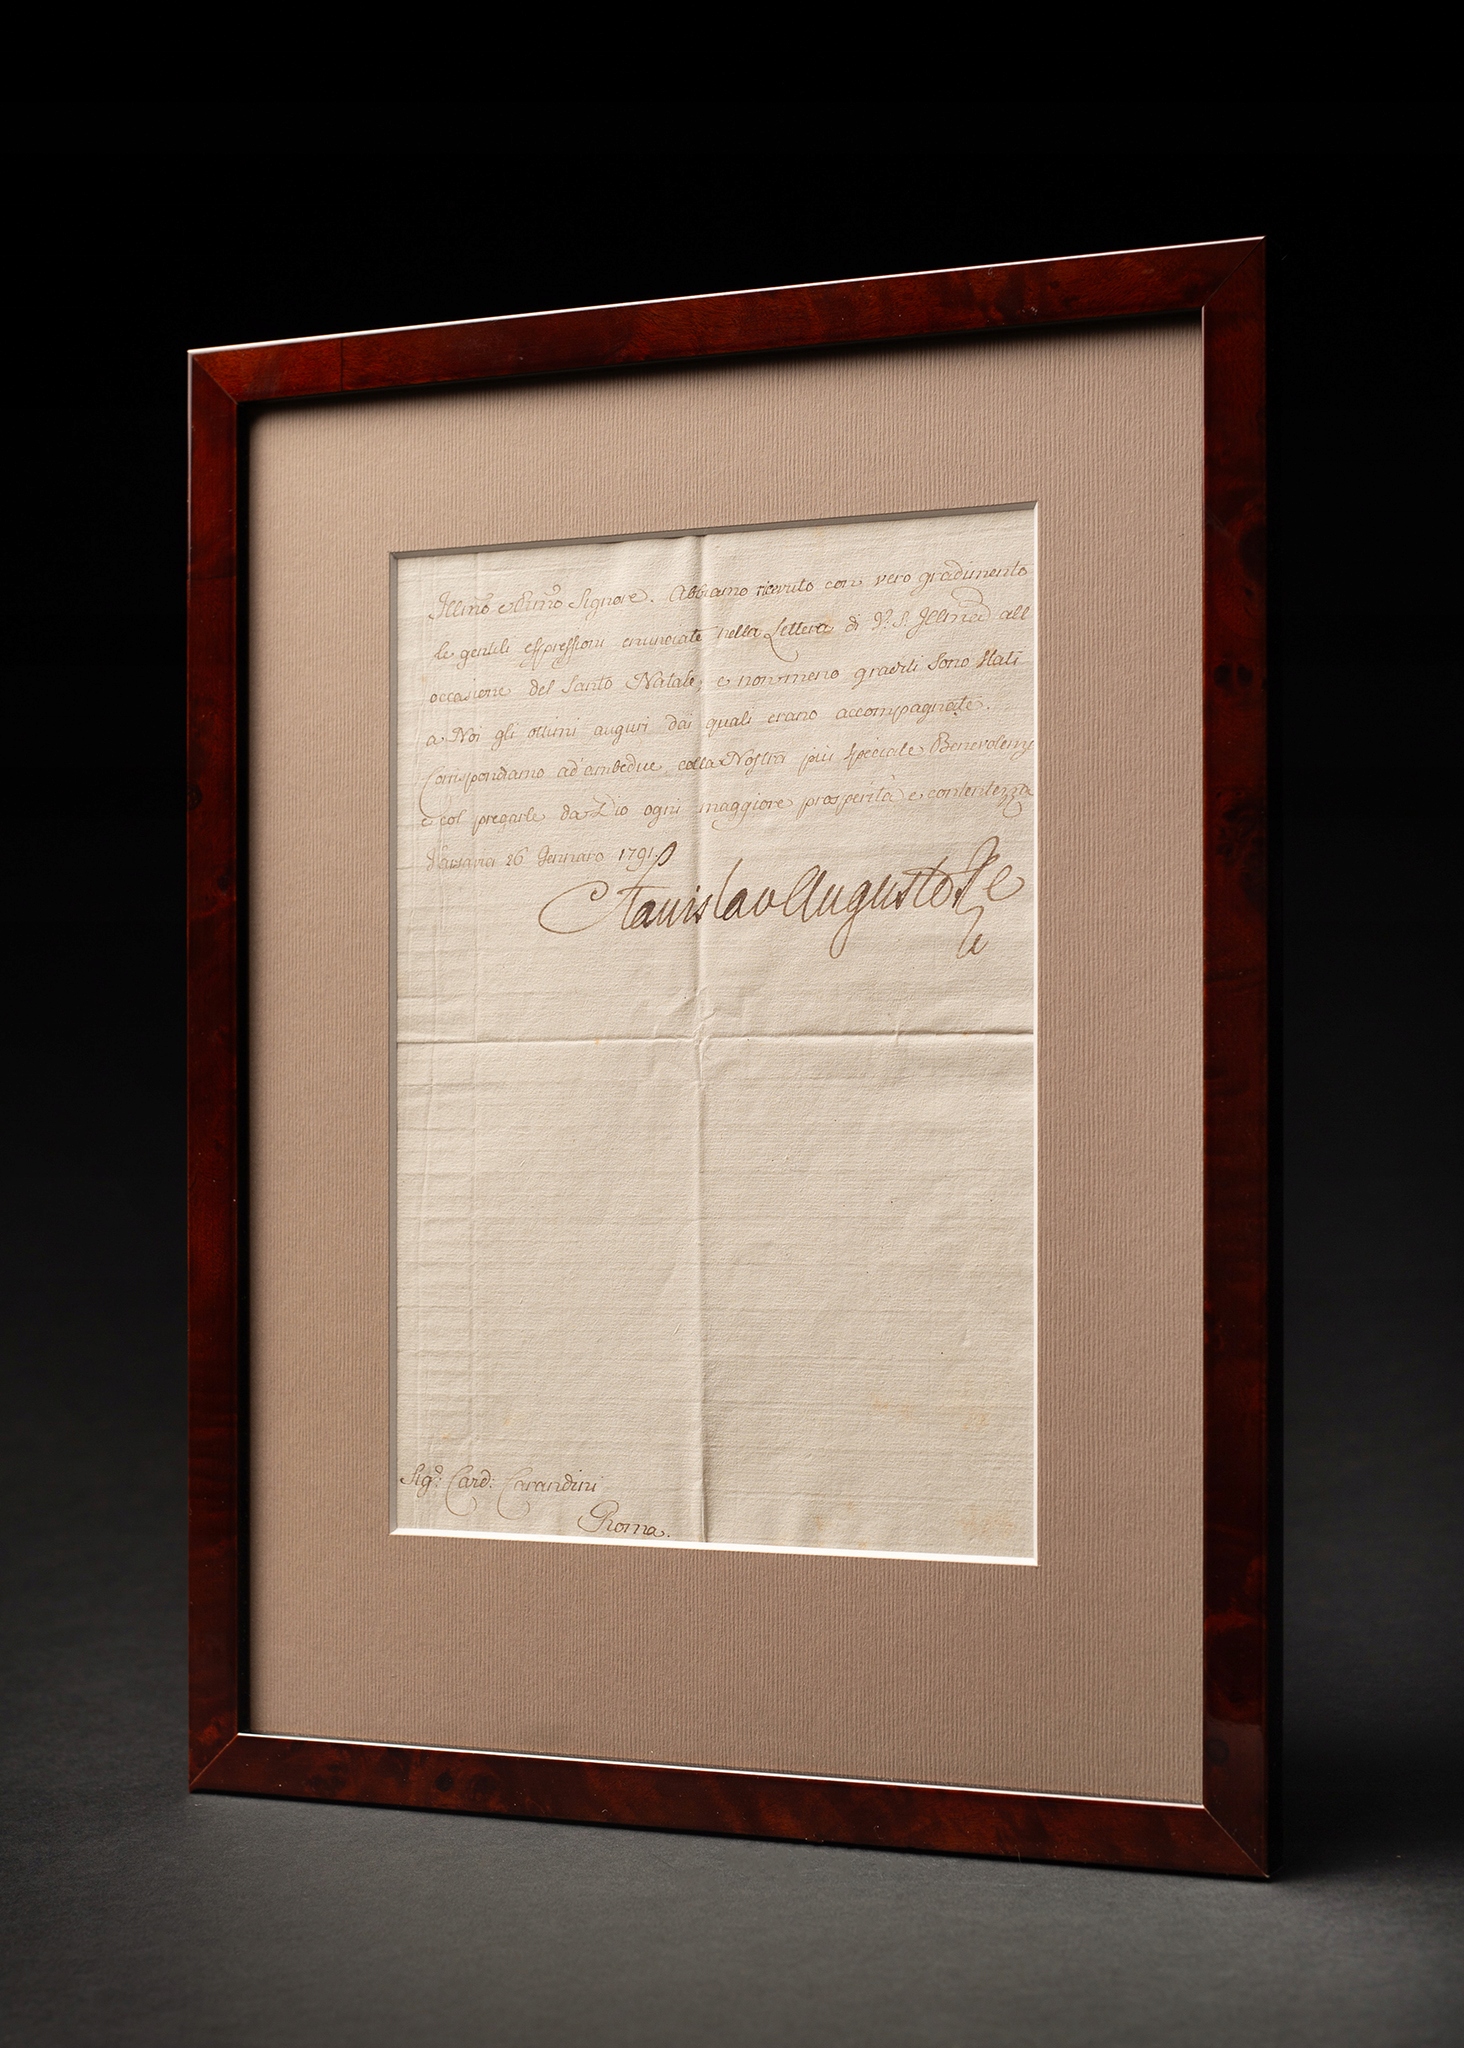 Illmo e Rmo Signore. Abbiamo ricevuto con vero gradimento
le gentili espressioni enunciate nella Lettera di V. S. Illma all
occasione del Santo Natale, e nonmeno graditi sono stati
a Noi gli ottimi auguri dai quali erano accompagnate.
Corrispondiamo ad'ambedue colla Nostra più speciale Benevolenz
e col pregarle da Dio ogni maggiore prosperità e contentezza
Varsavia 26 Gennaro 1791.
Stanislao Augusto Re
Sigr: Card: Carandini
Roma.